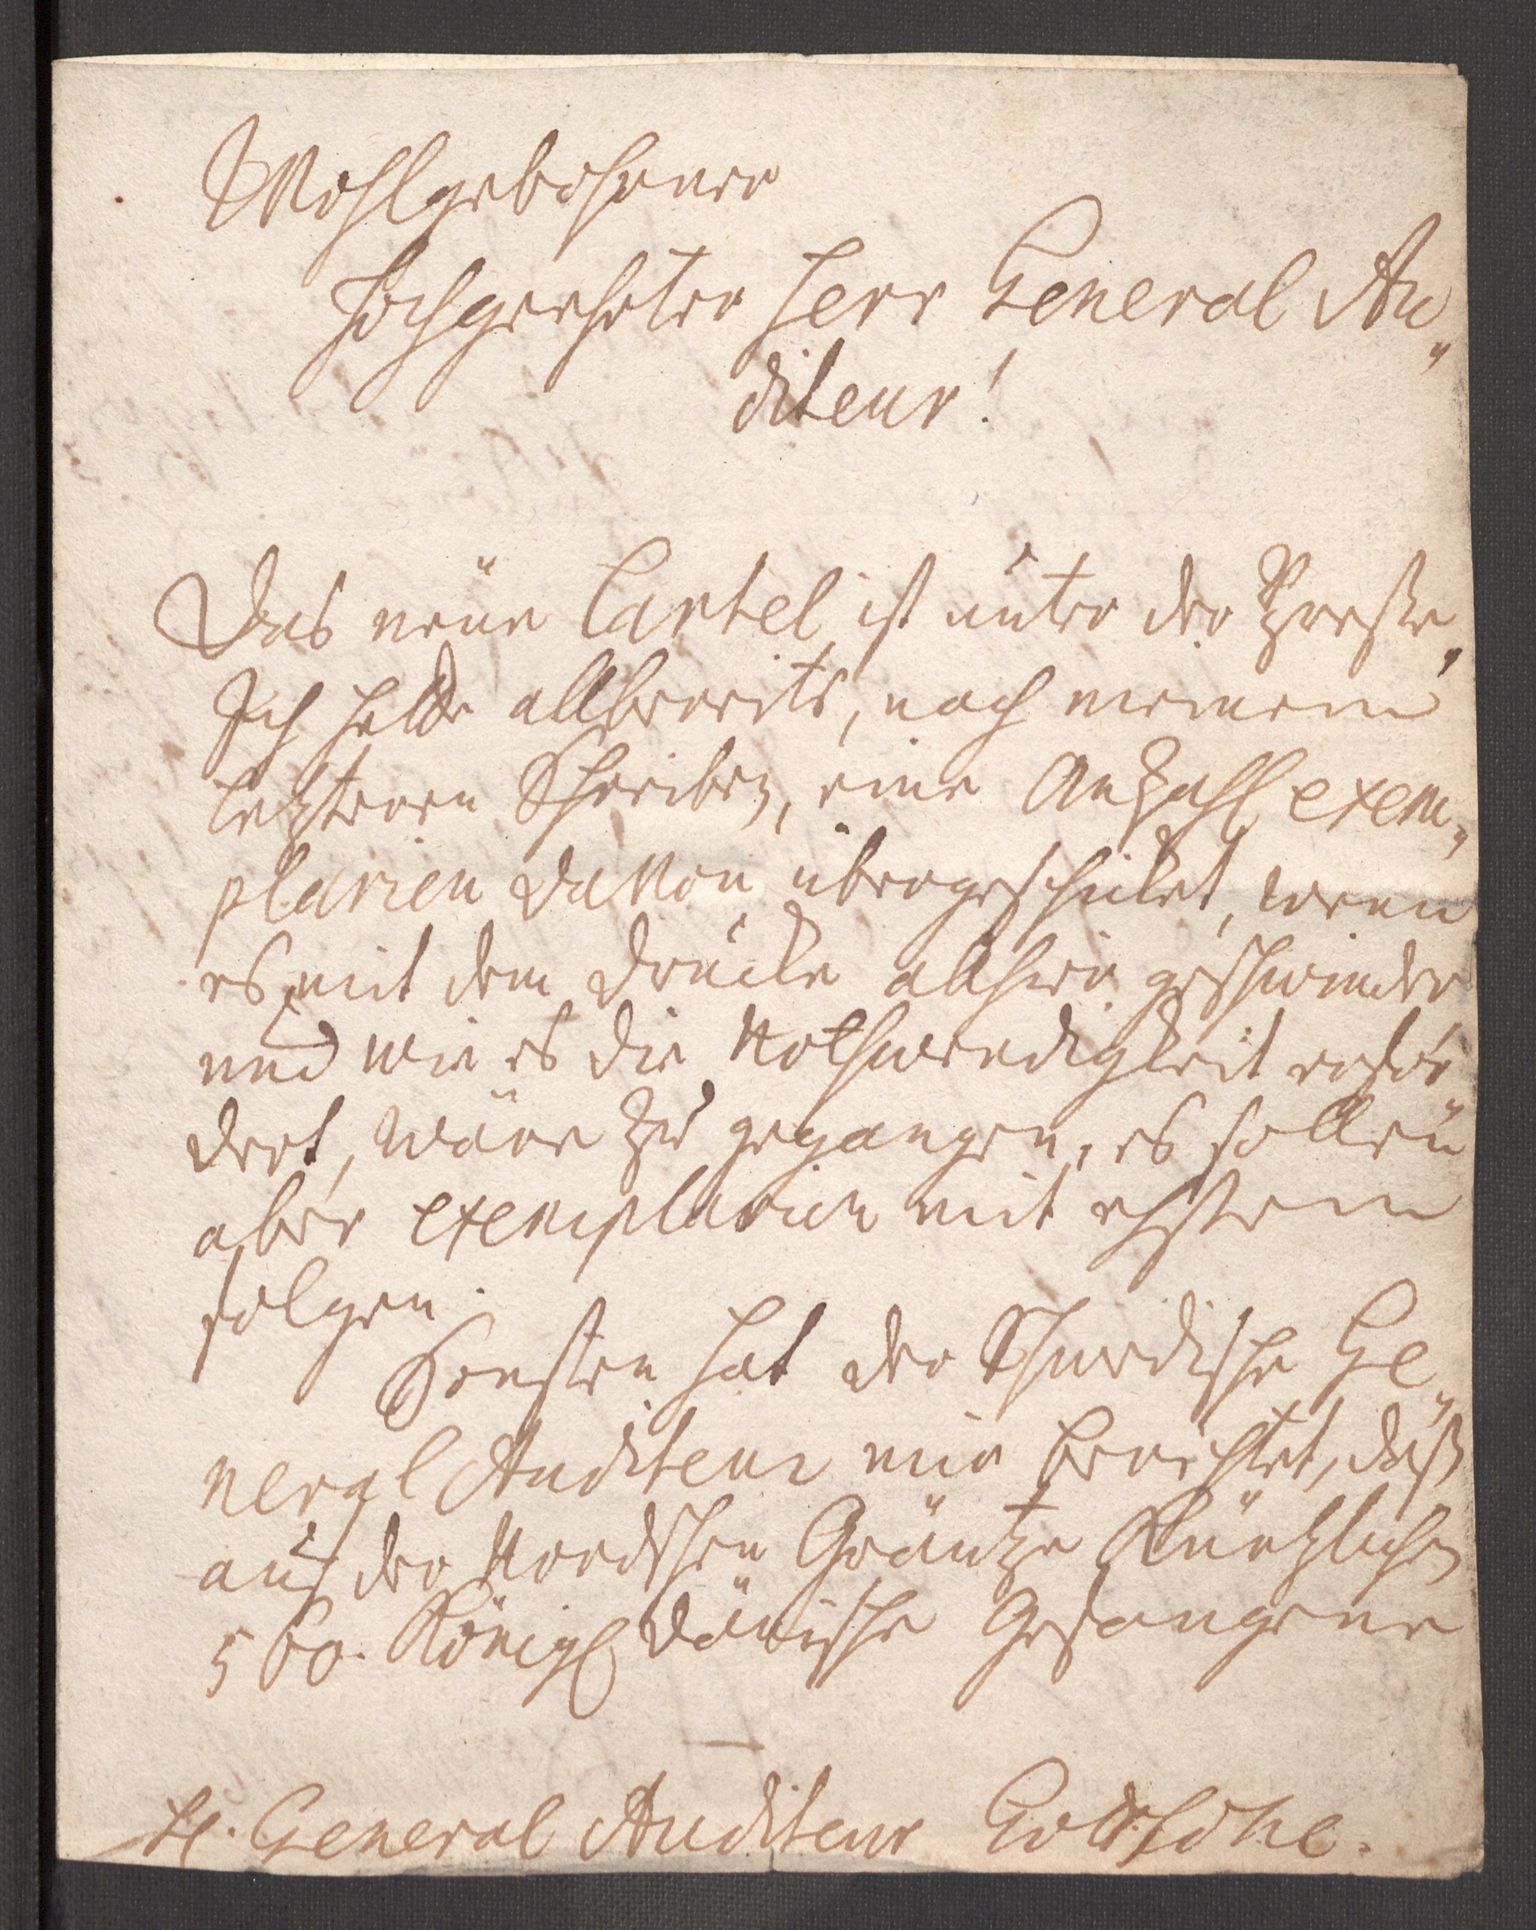 Wohlgebohrner
Hochgeehrter Herr General Au„
diteur!
Das neue Cartel ist unter der Presse,
Ich hätte allbereits, nach meinem
letzteren Schreiben, eine Anzahl exem„
plarien davon übergeschicket, wenn
es mit dem Drucke allhier geschwinder
und wie es die Nothwendigkeit erfor
dert, wäre zu gegangen, es sollen
aber exemplarien mit ehstem
folgen.
Sonsten hat der Schwedische Ge„
neral Auditeur mir berichtet, daß
aus der Nordschen Gräntze kürtzlichen
560. Königl Dänische Gefangene
H. General Auditeur